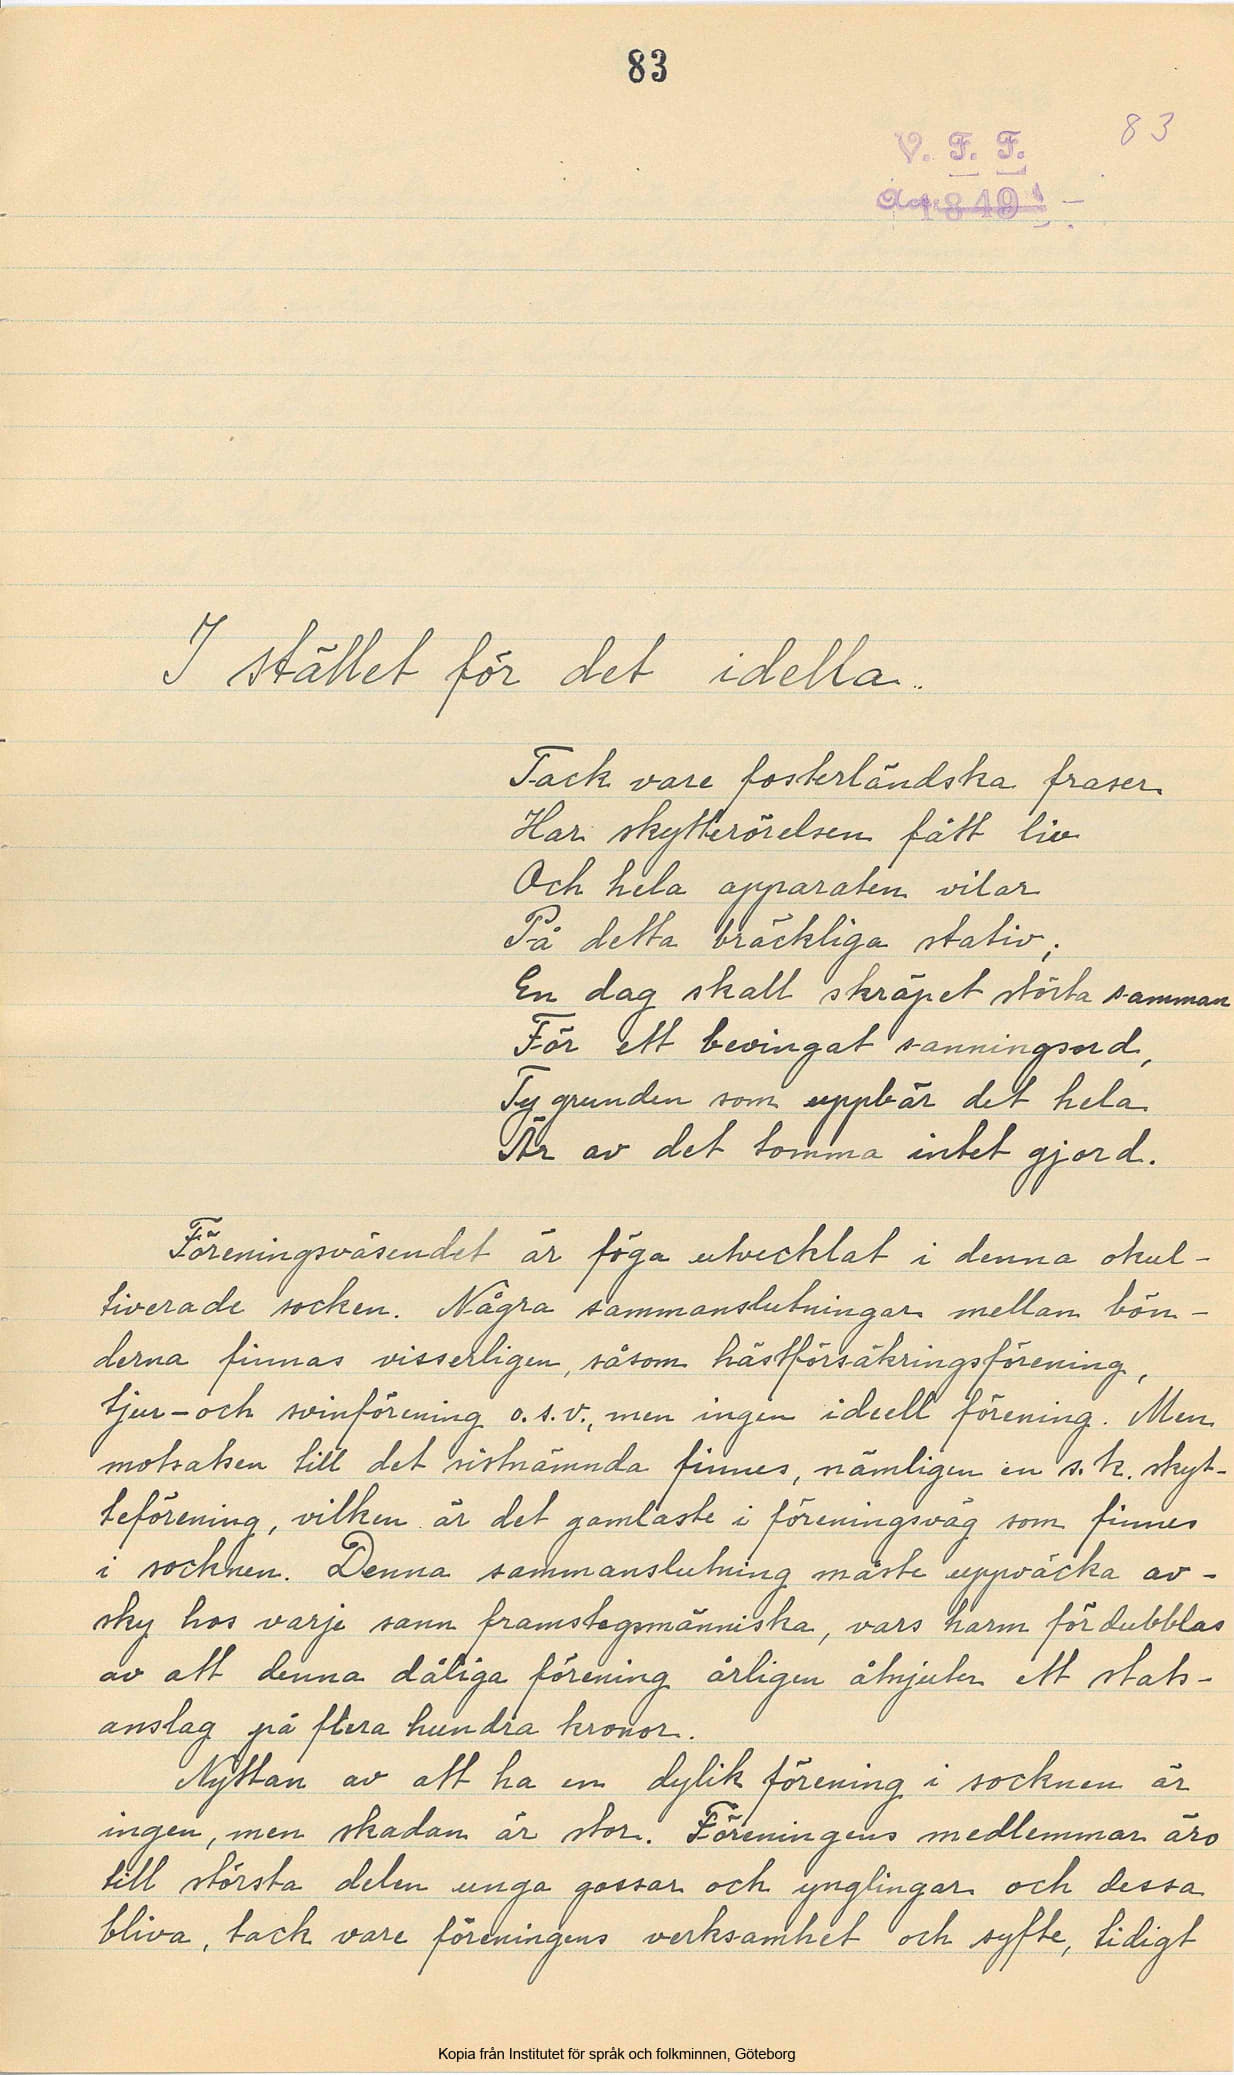 83
83
V. F. F.
1849
I stället för det idella.
Tack vare fosterländska fraser
Har skytterörelsen fått liv
Och hela apparaten vilar
På detta bräckliga stativ;
En dag skall skräpet störta samman
För ett bevingat sanningsord,
Ty grunden som uppbär det hela
Är av det tomma intet gjord.
Föreningsväsendet är föga utvecklat i denna okul-
tiverade socken. Några sammanslutningar mellan bön-
derna finnas visserligen, såsom hästförsäkringsförening,
tjur-och svinförening o.s.v., men ingen ideell förening. Men
motsatsen till det sistnämnda finnes, nämligen en s.k. skyt-
teförening, vilken är det gamlaste i föreningsväg som finnes
i socknen. Denna sammanslutning måste uppväcka av-
sky hos varje sann framstegsmänniska, vars harm fördubblas
av att denna dåliga förening årligen åtnjuter ett stats-
anslag på flera hundra kronor.
Nyttan av att ha en dylik förening i socknen är
ingen, men skadan är stor. Föreningens medlemmar äro
till största delen unga gossar och ynglingar och dessa
bliva, tack vare föreningens verksamhet och syfte, tidigt
Kopia från Institutet för språk och folkminnen, Göteborg